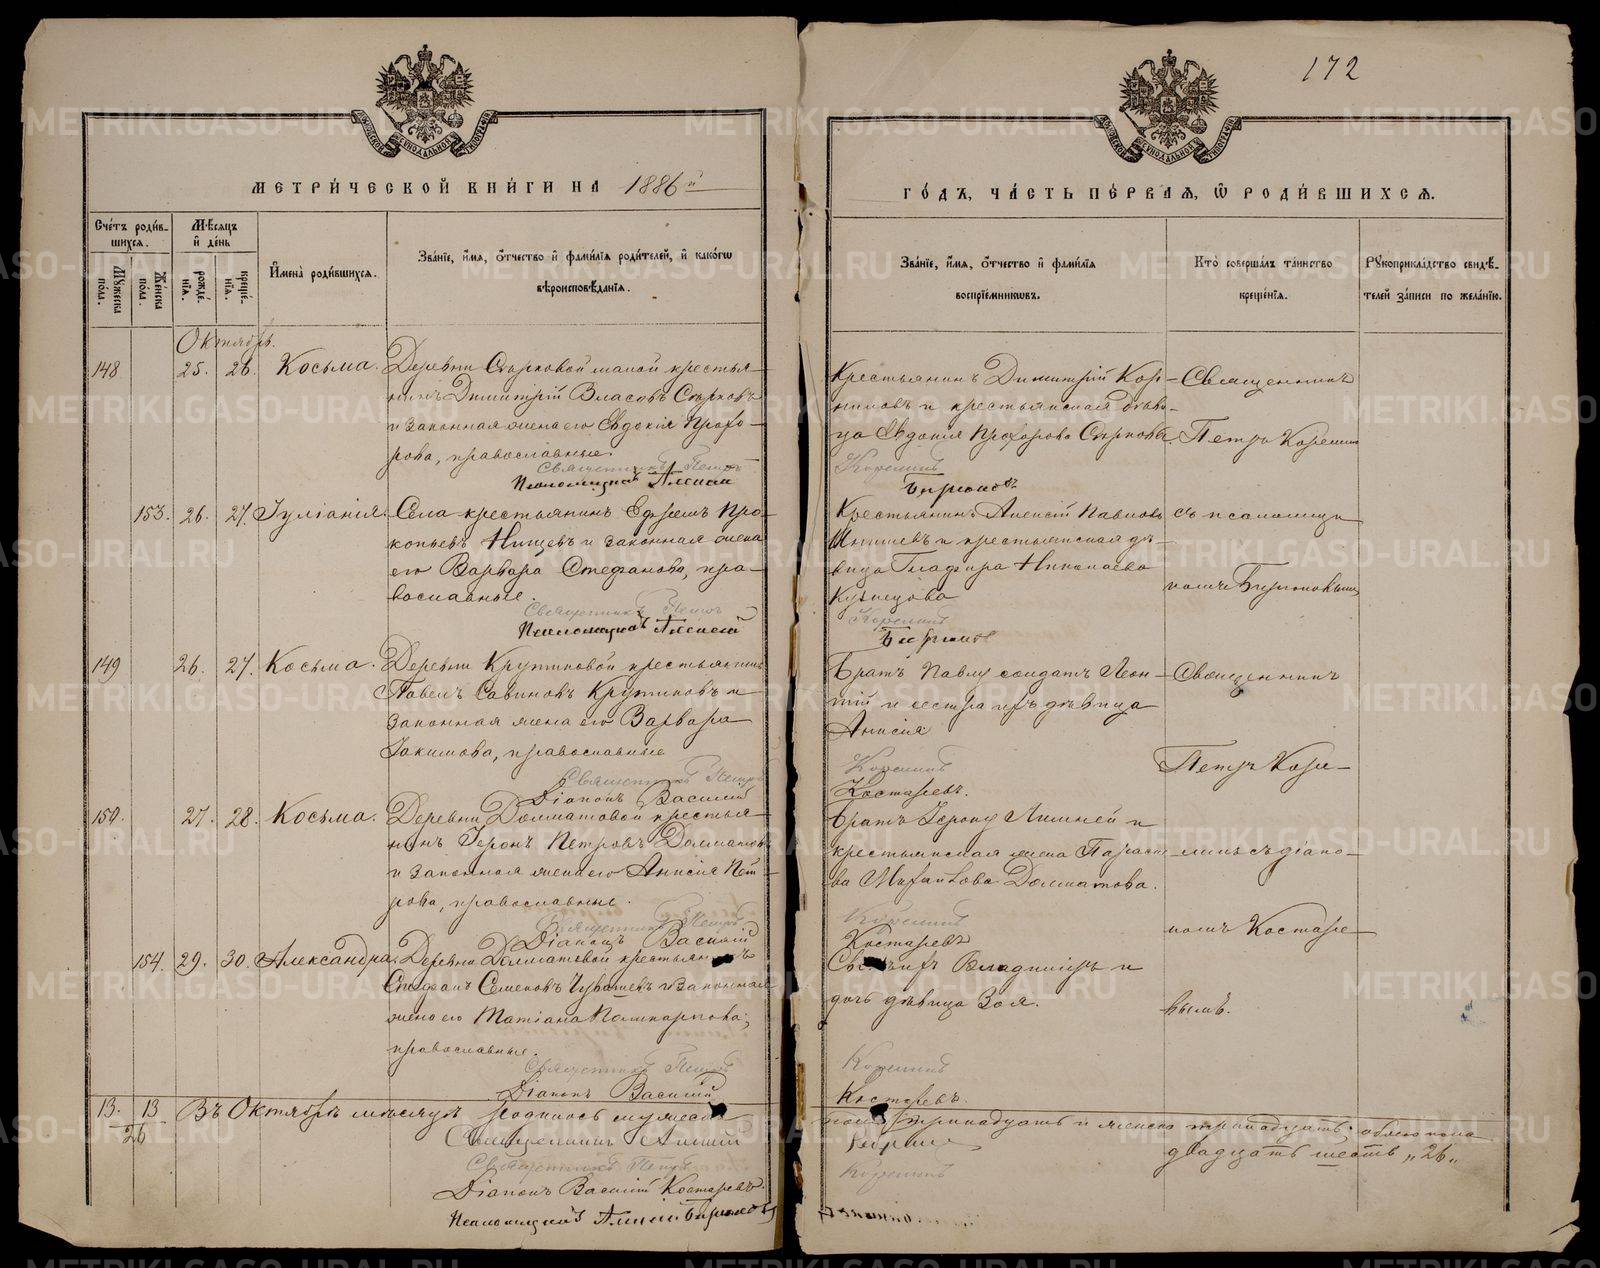 172
МЕТРИ́ЧЕСКОЙ КНИ́ГИ НА 1886 й
ГО́ДЪ, ЧА́СТЬ ПЕ́РВАЯ, Ѡ҆ РОДИ́ВШИХСЯ.
Сче́тъ роди́в-
шихся.
Мѣ́сяцъ
и҆ де́нь
Му́жеска пола.
Же́нска пола.
рожде́-
нїя.
креще́-
нїя.
И҆мена̀ роди́вшихся.
Зва́нїе, и҆́мя, ѻ҆́тчество и҆ фами́лїя роди́телей, и҆ како́гѡ
вѣроисповѣ́данїя.
Зва́нїе, и҆́мя, ѻ҆́тчество и҆ фами́лїя
воспрїе́мникѡвъ.
Кто̀ соверша́лъ та́инство
креще́нїя.
Рꙋкоприкла́дство свидѣ́-
телей за́писи по жела́нїю.
Октябрь.
148 25. 26. Косьма. Деревни малой крестья-
нинъ Димитрій Власовъ
и законная жена его Евдокія Прохо-
рова, православные.
Священникъ Петръ
Псаломщикъ Алексій
Крестьянинъ Димитрій Кор-
ниловъ и крестьянская дѣви-
ца Евдокія Прохорова
Корелинъ
Бирюковъ
Священникъ
Петръ Корелинъ
153. 26. 27. Іуліанія. Села крестьянинъ Ефремъ Про-
копьевъ и законная жена
его Варвара Стефанова, пра-
вославные.
Священникъ Петръ
Псаломщикъ Алексій
Крестьянинъ Алексій Павловъ
и крестьянская дѣ-
вица Глафира Николаева
Кузнецова
Корелинъ
Бирюковъ
съ псаломщи-
комъ Бирюковымъ
149 26. 27. Косьма. Деревни Крутиковой крестьянинъ
Павелъ Савиновъ Крутиковъ и
законная жена его Варвара
Іакимова, православные
Священникъ Петръ
Діаконъ Василій
Братъ Павлу солдатъ Леон-
тій и сестра ихъ дѣвица
Анисія
Корелинъ
Костаревъ.
Священникъ
Петръ Коре-
150. 27. 28. Косьма. Деревни Долматовой крестья-
нинъ Іеронъ Петровъ Долматовъ
и законная жена его Анисія Пет-
рова, православные.
Священникъ Петръ
Діаконъ Василій
Братъ Іерону и
крестьянская жена Параске-
ва Долматова.
Корелинъ
Костаревъ
линъ съ діако-
номъ Костаре-
154. 29. 30. Александра. Деревни Долматовой крестьянинъ
Стефанъ Семеновъ и законная
жена его Татіана Поликарпова;
православные.
Священникъ Петръ
Діаконъ Василій
Владиміръ и
дочь дѣвица Зоя.
Корелинъ
Костаревъ.
вымъ.
13. 13 Въ Октябрѣ мѣсяцѣ родилось мужеска
26
пола тринадцать и женска тринадцать, обоего пола
двадцать шесть „26„
Священникъ
Священникъ Петръ Корелинъ
Діаконъ Василій Костаревъ.
Псаломщикъ Алексій Бирюковъ
METRIKI.GASO-URAL.RU